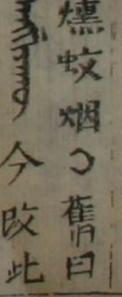 燻蚊烟○舊曰
今改此